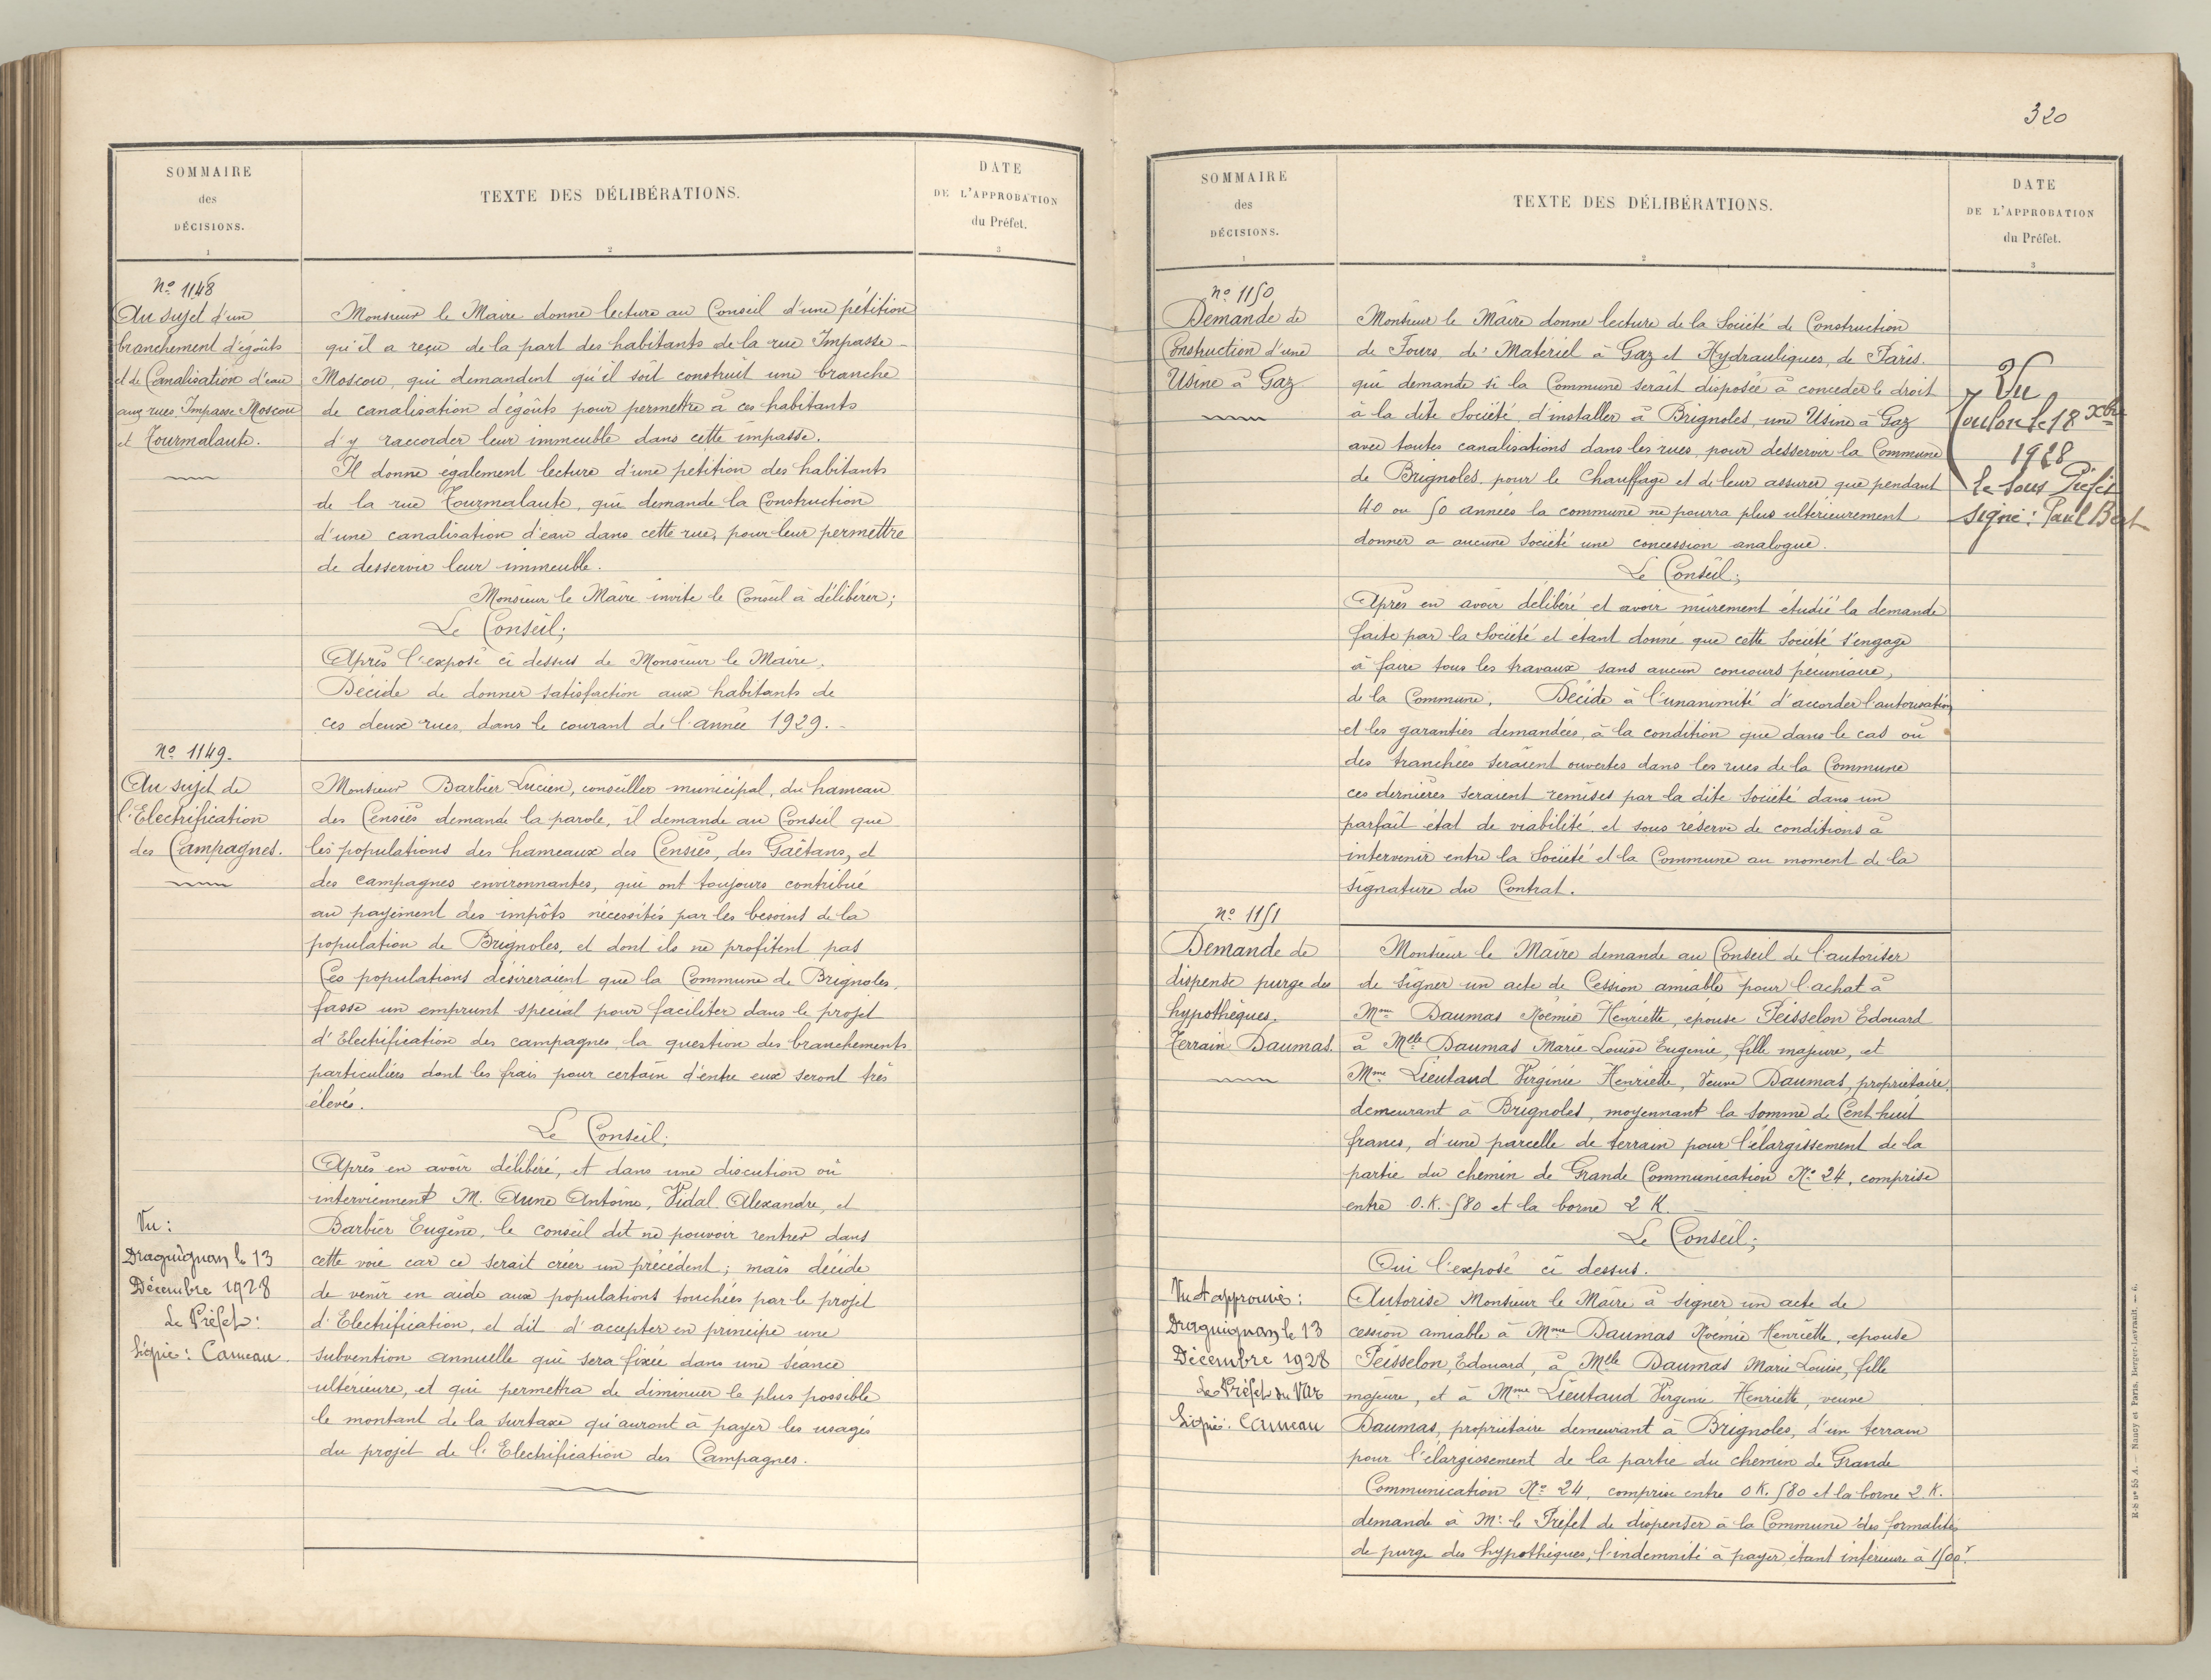 SOMMAIRE
des
DÉCISIONS.
1
TEXTE DES DÉLIBÉRATIONS.
2
DATE
DE L'APPROBATION
du Préfet.
3
No 1148
Au sujet d'un
branchement d'égoûts
et de Canalisation d'eau
aux rues Impasse Moscou
et Tourmalaute.
Monsieur le Maire donne lecture au Conseil d'une pétition
qu'il a reçu de la part des habitants de la rue Impasse
Moscou, qui demandent qu'il soit construit une branche
de canalisation d'égoûts pour permettre à ces habitants
d'y raccorder leur immeuble dans cette impasse.
Il donne également lecture d'une pétition des habitants
de la rue Tourmalaute, qui demande la Construction
d'une canalisation d'eau dans cette rue, pour leur permettre
de desservir leur immeuble.
Monsieur le Maire invite le Conseil à délibérer;
Le Conseil;
Après l'exposé ci dessus de Monsieur le Maire,
Décide de donner satisfaction aux habitants de
ces deux rues dans le courant de l'année 1929.
No 1149.
Au sujet de
l'Electrification
des Campagnes.
Monsieur Barbier Lucien, conseiller municipal, du hameau
des Censiès demande la parole, il demande au Conseil que
les populations des hameaux des Censiès, des Gaëtans, et
des campagnes environnantes, qui ont toujours contribué
au payement des impôts nécessités par les besoins de la
population de Brignoles, et dont ils ne profitent pas
Ces populations désireraient que la Commune de Brignoles,
fasse un emprunt spécial pour faciliter dans le projet
d'Electrification des campagnes la question des branchements
particuliers dont les frais pour certain d'entre eux seront très
élevés.
Le Conseil;
Après en avoir délibéré, et dans une discution où
interviennent M. Aune Antoine, Vidal Alexandre, et
Barbier Eugène, le conseil dit ne pouvoir rentrer dans
cette voie car ce serait créer un précédent; mais décide
de venir en aide aux populations touchées par le projet
d'Electrification, et dit d'accepter en principe une
subvention annuelle qui sera fixée dans une séance
ultérieure, et qui permettra de diminuer le plus possible
le montant de la surtaxe qu'auront à payer les usagés
du projet de l'Electrification des Campagnes.
Vu:
Draguignan le 13
Décembre 1928
Le Préfet:
Signé: Carreau.
320
SOMMAIRE
des
DÉCISIONS.
1
TEXTE DES DÉLIBÉRATIONS.
2
DATE
DE L'APPROBATION
du Préfet.
3
No 1150
Demande de
Construction d'une
Usine à Gaz
Monsieur le Maire donne lecture de la Société de Construction
de Fours, de Matériel à Gaz et Hydrauliques, de Paris.
qui demande si la Commune serait disposée à conceder le droit
à la dite Société d'installer à Brignoles, une Usine à Gaz
avec toutes canalisations dans les rues pour desservir la Commune
de Brignoles pour le Chauffage et de leur assurer que pendant
40 ou 50 années la commune ne pourra plus ultérieurement
donner a aucune Société une concession analogue.
Le Conseil;
Après en avoir délibéré et avoir mûrement étudié la demande
faite par la Société et étant donné que cette Société s'engage
à faire tous les travaux sans aucun concours pécuniaire,
de la Commune. Décide à l'unanimité d'accorder l'autorisation
et les garanties demandées, à la condition que dans le cas où
des tranchées seraient ouvertes dans les rues de la Commune
ces dernières seraient remises par la dite Société dans un
parfait état de viabilité et sous réserve de conditions à
intervenir entre la Société et la Commune au moment de la
signature du Contrat.
Vu
Toulon le 18 Xbre
1928
Le Sous Préfet
signé: Paul Bert
No 1151
Demande de
dispense purge des
hypothèques.
Terrain Daumas.
Monsieur le Maire demande au Conseil de l'autoriser
de signer un acte de Cession amiable pour l'achat à
Mme Daumas Noëmie Henriette, épouse Peisselon Edouard
à Melle Daumas Marie Louise Eugenie, fille majeure, et
Mme Lieutaud Virginie Henriette, Veuve Daumas, propriétaire,
demeurant à Brignoles, moyennant la somme de Cent huit
francs, d'une parcelle de terrain pour l'élargissement de la
partie du chemin de Grande Communication No 24, comprise
entre O.K.580 et la borne 2 K.
Le Conseil;
Oui l'exposé ci dessus.
Autorise Monsieur le Maire à signer un acte de
cession amiable à Mme Daumas Noëmie Henriette, epouse
Peisselon, Edouard, à Melle Daumas Marie Louise, fille
majeure, et à Mme Lieutaud Virginie Henriette, veuve
Daumas, propriétaire demeurant à Brignoles, d'un terrain
pour l'élargissement de la partie du chemin de Grande
Communication No 24, comprise entre O K. 580 et la borne 2.K.
demande à Mr le Préfet de dispenser à la Commune des formalités
de purge des hypothèques, l'indemnité à payer étant inférieure à 1500f.
Vu et approuvé:
Draguignan, le 13
Décembre 1928
Le Préfet du Var
Signé: Carreau
R-S no 55 A. — Nancy et Paris, Berger-Levrault. — 6.